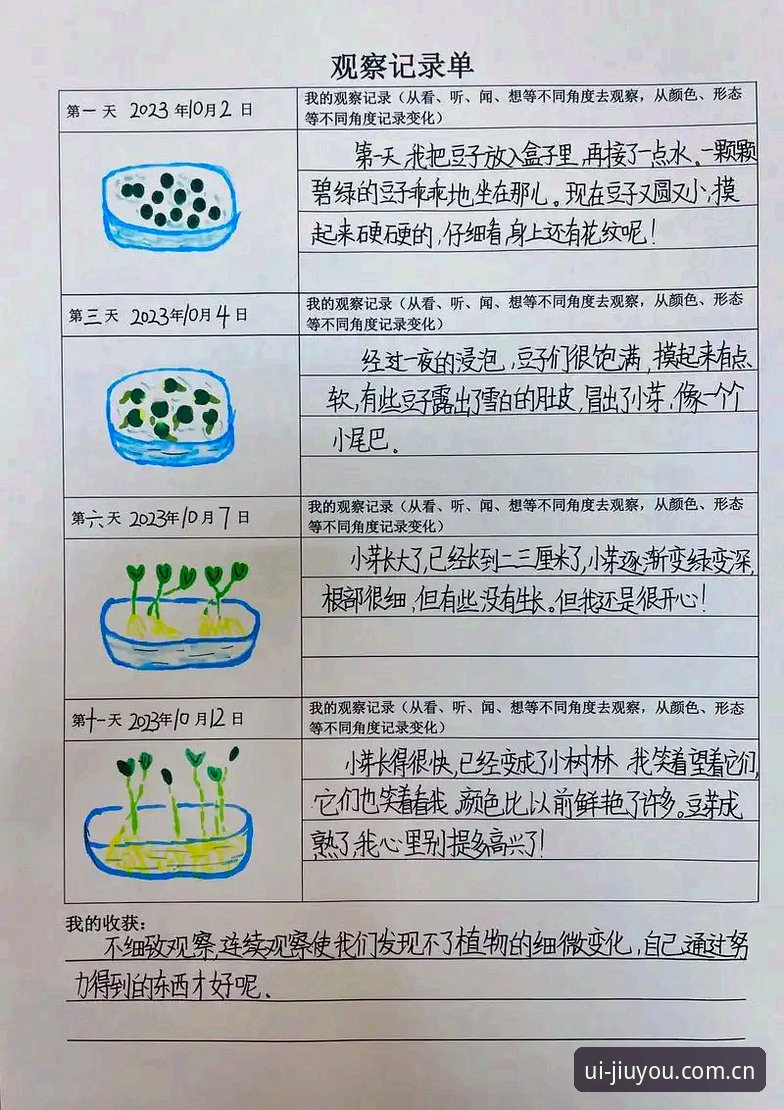 观察记录单
第一天 2023年10月2日
我的观察记录（从看、听、闻、想等不同角度去观察，从颜色、形态
等不同角度记录变化）
第一天，我把豆子放入盒子里，再接了一点水。一颗颗
碧绿的豆子乖乖地坐在那儿。现在豆子又圆又小，摸
起来硬硬的，仔细看，身上还有花纹呢！
第三天 2023年10月4日
我的观察记录（从看、听、闻、想等不同角度去观察，从颜色、形态
等不同角度记录变化）
经过一夜的浸泡，豆子们很饱满，摸起来有点
软，有些豆子露出了雪白的肚皮，冒出了小芽，像一个个
小尾巴。
第六天 2023年10月7日
我的观察记录（从看、听、闻、想等不同角度去观察，从颜色、形态
等不同角度记录变化）
小芽长大了，已经长到二三厘米了，小芽逐渐变绿变深，
根部很细，但有些没有生长。但我还是很开心！
第十一天 2023年10月12日
我的观察记录（从看、听、闻、想等不同角度去观察，从颜色、形态
等不同角度记录变化）
小芽长得很快，已经变成了小树林，我笑着望着它们，
它们也笑着看我。颜色比以前鲜艳了许多。豆芽成
熟了，我心里别提多高兴了！
我的收获：
不细致观察，连续观察使我们发现不了植物的细微变化，自己通过努
力得到的东西才好呢。
ui-jiuyou.com.cn